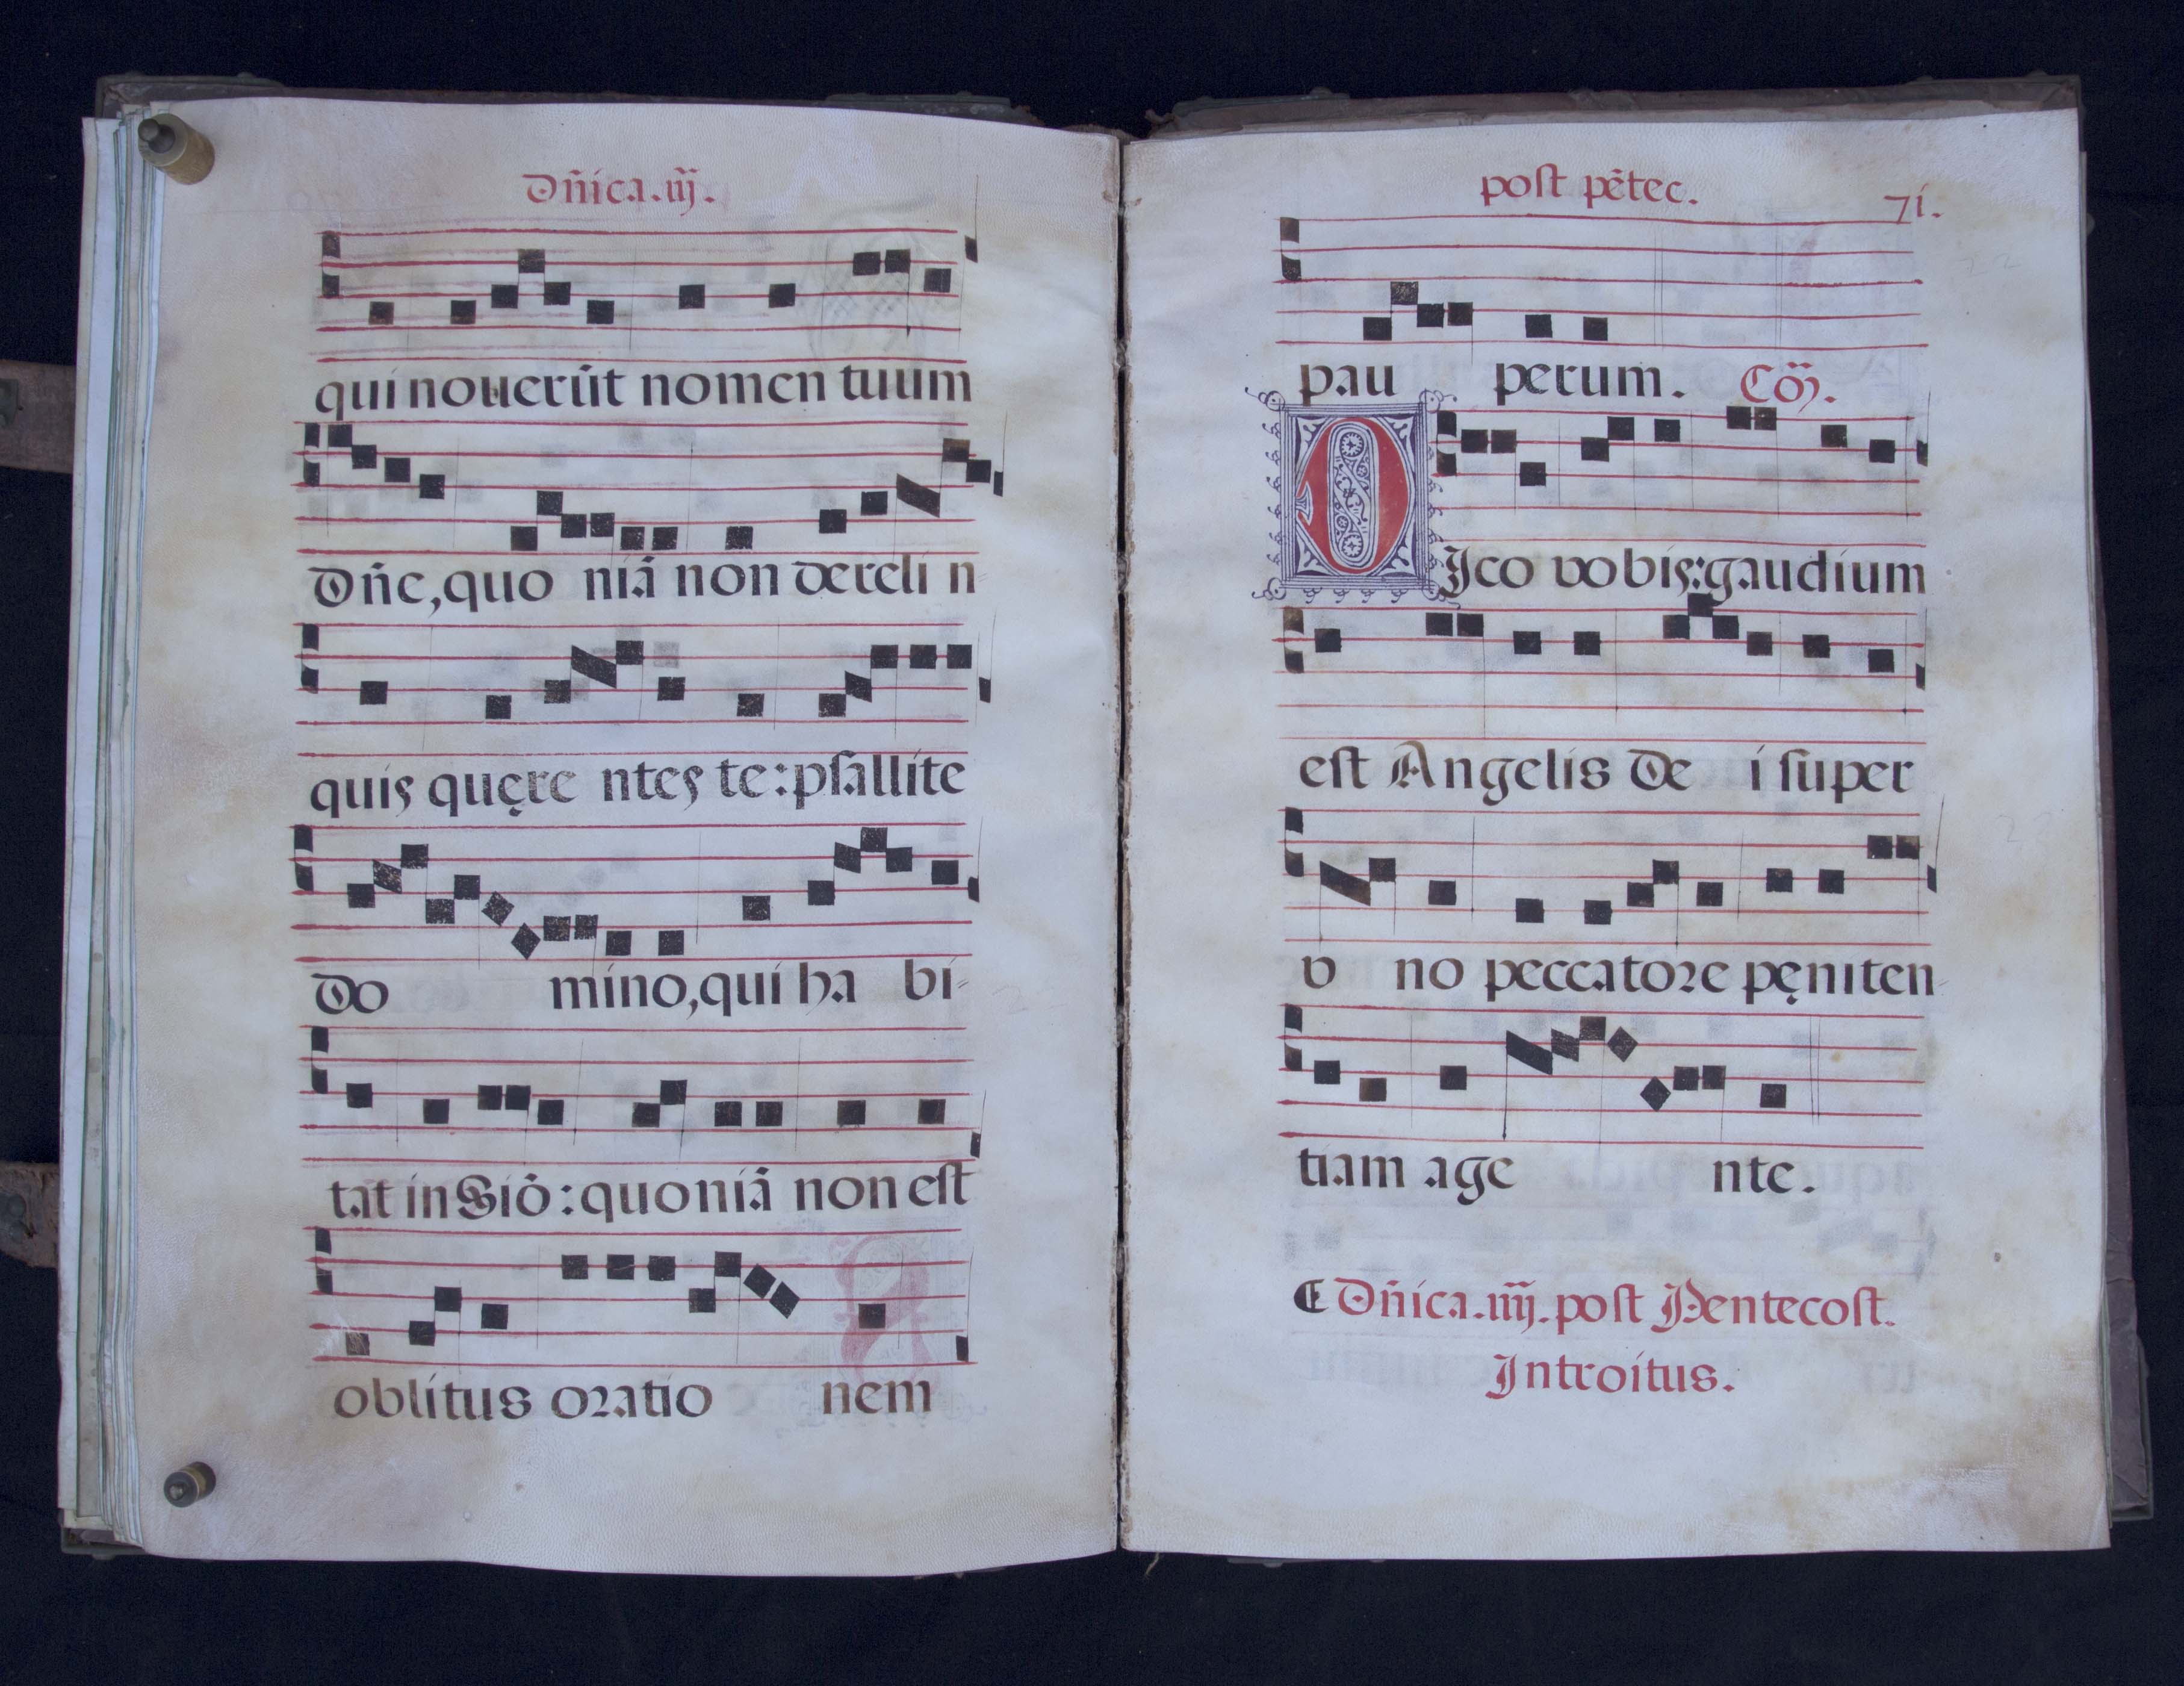 Dñica.iij.
qui noverūt nomen tuum
Dñe, quo niā non dereli n-
quis quęre ntes te: psallite
Do mino, qui ha bi-
tat in Siō: quoniā non est
oblitus oratio nem
post pētec. 71.
pau perum. Cō.
DIco vobis: gaudium
est Angelis De i super
v no peccatore pęniten-
tiam age nte.
Dñica.iiij. post Pentecost.
Introitus.